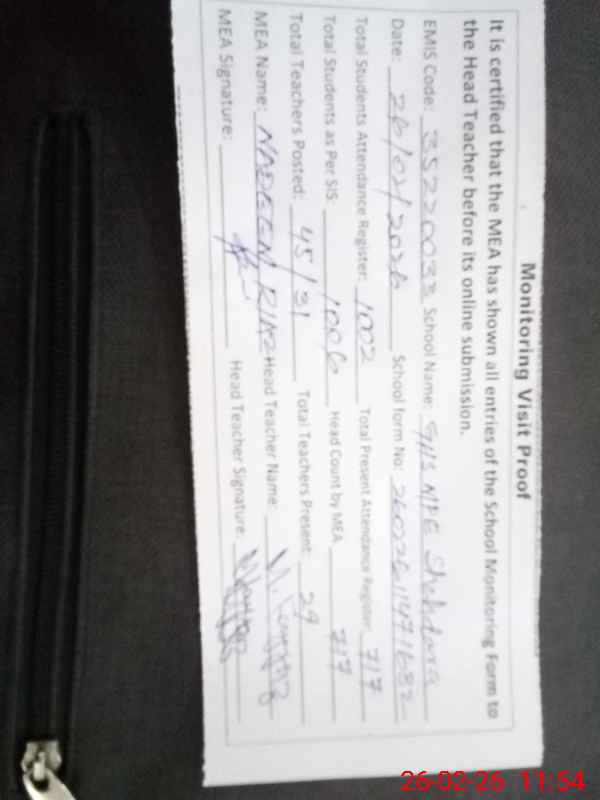 Monitoring Visit Proof
It is certified that the MEA has shown all entries of the School Monitoring Form to
the Head Teacher before its online submission.
EMIS Code: 35220033 School Name: GHS MPE Shahdara
Date: 26/02/2026 School form No:
Total Students Attendance Register: 1002 Total Present Attendance Register: 717
Total Students as Per SIS: 1006 Head Count by MEA 717
Total Teachers Posted: 45/31 Total Teachers Present: 29
MEA Name: NADEEM RIAZ Head Teacher Name:
MEA Signature: Head Teacher Signature:
26-02-26 11:54